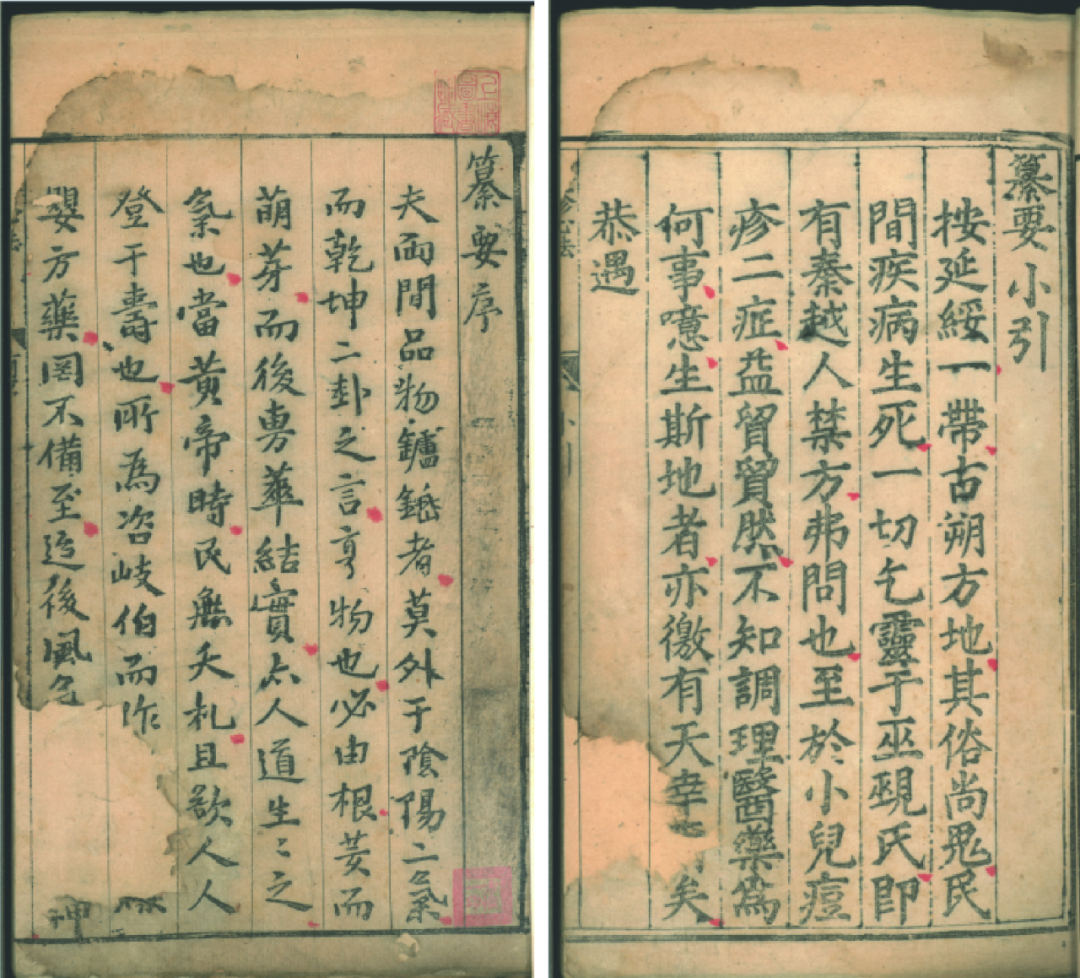 纂要序
夫兩間品物鑪錘者莫外于陰陽二氣
而乾坤二卦之言亨物也必由根荄而
萌芽而後旉華結實亦人道生〻之
氣也當黃帝時民無夭札且欲人人
登于壽也所為咨岐伯而作
嬰方藥罔不備至迨後風神
纂要小引
按延綏一帶古朔方地其俗尚鬼民
間疾病生死一切乞靈于巫覡氏即
有秦越人禁方弗問也至於小兒痘
疹二症益貿貿然不知調理醫藥為
何事噫生斯地者亦徼有天幸矣
恭遇